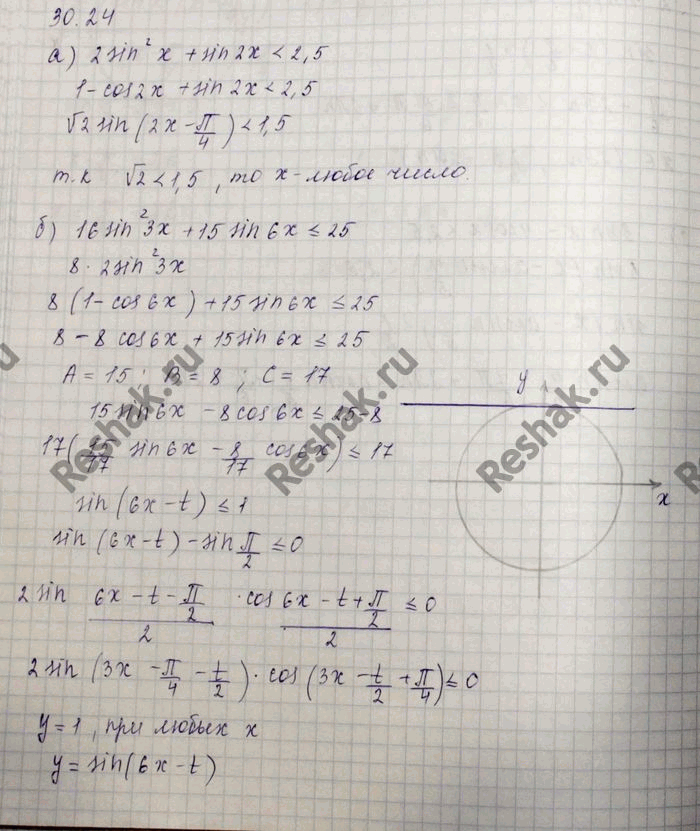 30.24
а) 2sin²x + sin2x < 2,5
1 - cos2x + sin2x < 2,5
√2 sin(2x - π/4) < 1,5
т.к √2 < 1,5, то x - любое число.
б) 16sin²3x + 15sin6x ≤ 25
8 · 2sin²3x
8(1 - cos6x) + 15sin6x ≤ 25
8 - 8cos6x + 15sin6x ≤ 25
A = 15; B = 8; C = 17
15sin6x - 8cos6x ≤ 25-8
17(15/17 sin6x - 8/17 cos6x) ≤ 17
sin(6x - t) ≤ 1
sin(6x-t) - sin π/2 ≤ 0
2sin (6x - t - π/2)/2 · cos (6x - t + π/2)/2 ≤ 0
2sin(3x - π/4 - t/2) · cos(3x - t/2 + π/4) ≤ 0
y = 1, при любых x
y = sin(6x - t)
y
x
Reshak.ru
Reshak.ru
Reshak.ru